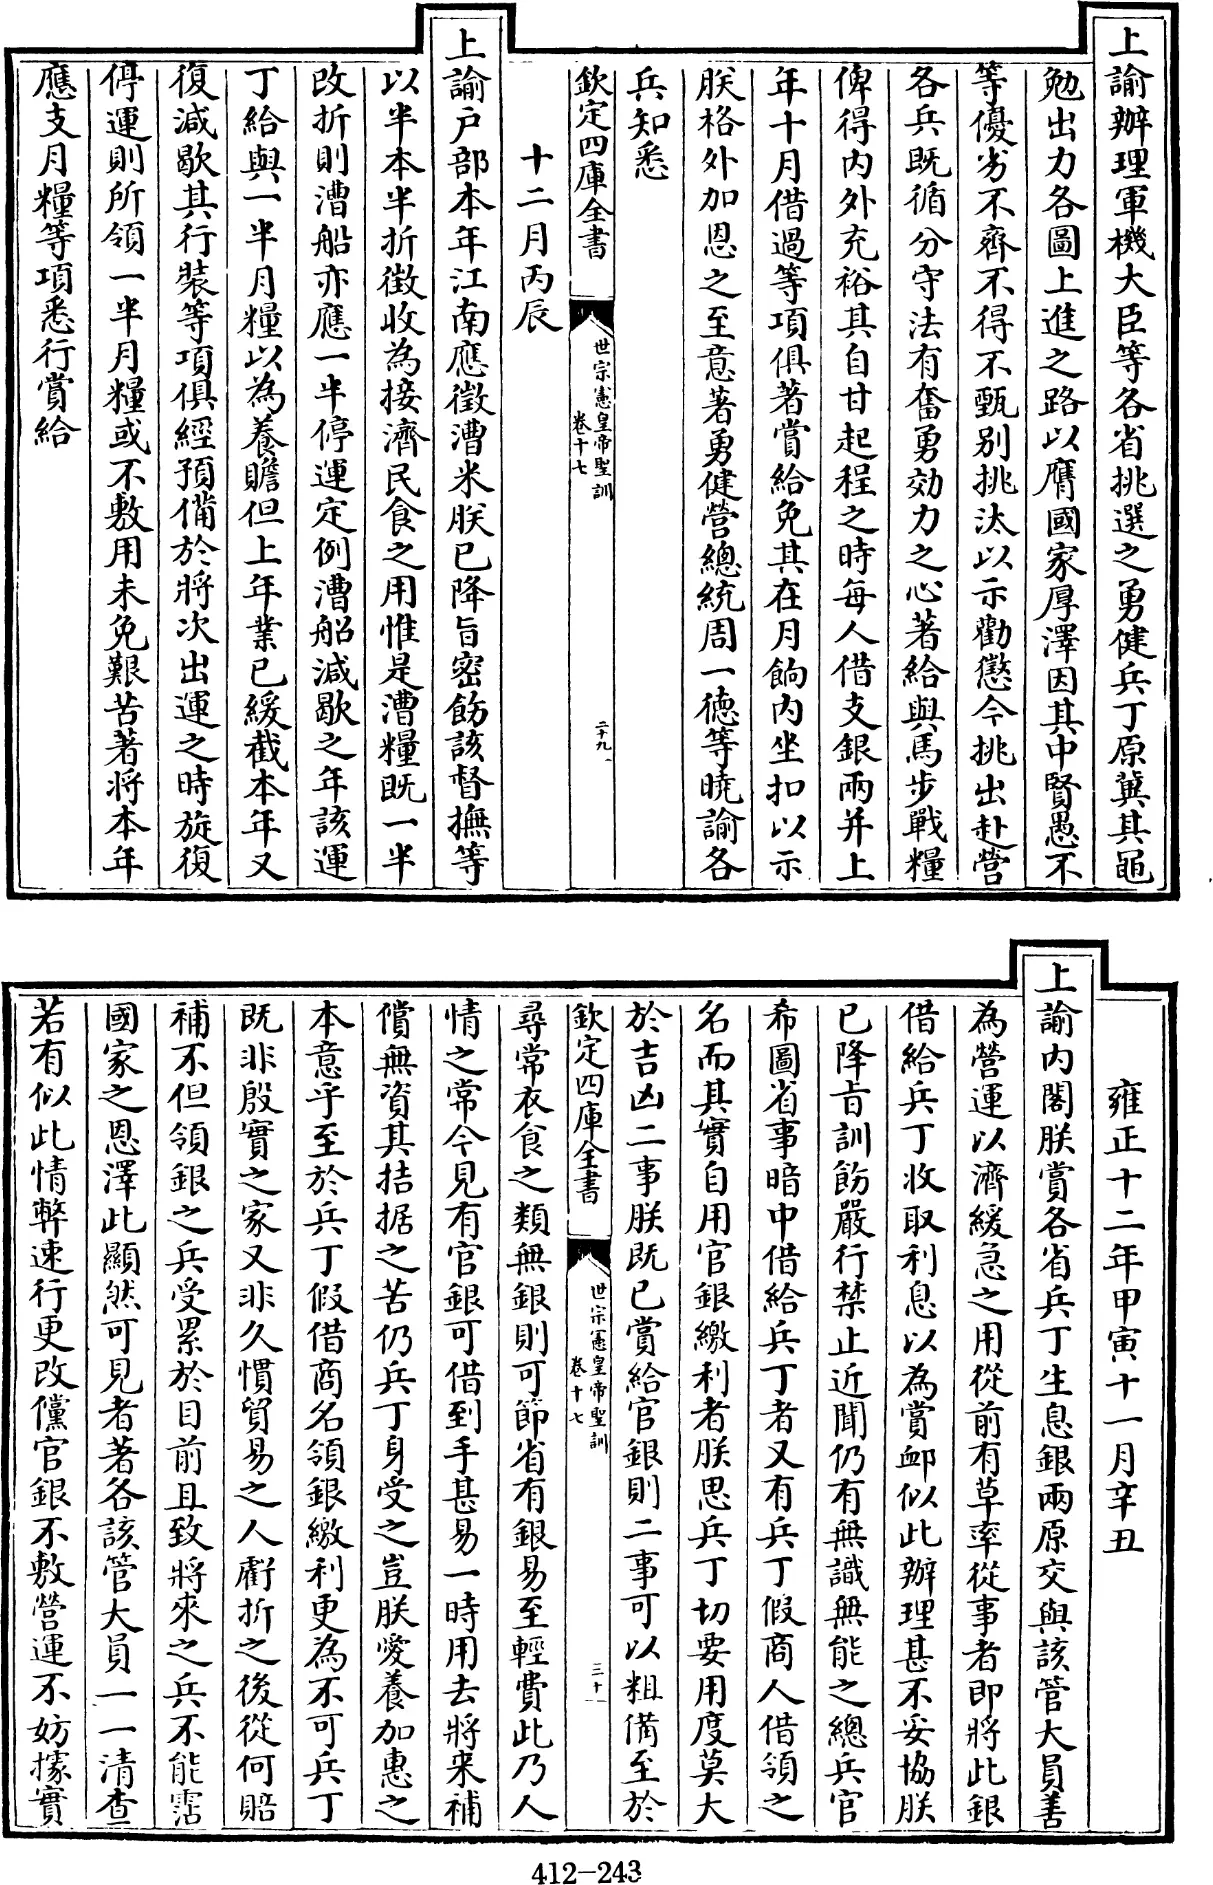 上諭辦理軍機大臣等各省挑選之勇健兵丁原冀其黽
勉出力各圖上進之路以膺國家厚澤因其中賢愚不
等優劣不齊不得不甄别挑汰以示勸懲今挑出赴營
各兵既循分守法有奮勇効力之心著給與馬步戰糧
俾得内外充裕其自甘起程之時每人借支銀兩并上
年十月借過等項俱著賞給免其在月餉内坐扣以示
朕格外加恩之至意著勇健營總統周一徳等曉諭各
兵知悉
欽定四庫全書
世宗憲皇帝聖訓
卷十七
二十九
十二月丙辰
上諭户部本年江南應徵漕米朕已降旨密飭該督撫等
以半本半折徵收為接濟民食之用惟是漕糧既一半
改折則漕船亦應一半停運定例漕船減歇之年該運
丁給與一半月糧以為養贍但上年業已緩截本年又
復減歇其行裝等項俱經預備於將次出運之時旋復
停運則所領一半月糧或不敷用未免艱苦著將本年
應支月糧等項悉行賞給
雍正十二年甲寅十一月辛丑
上諭内閣朕賞各省兵丁生息銀兩原交與該管大員善
為營運以濟緩急之用從前有草率從事者即將此銀
借給兵丁收取利息以為賞䘏似此辦理甚不妥協朕
已降旨訓飭嚴行禁止近聞仍有無識無能之總兵官
希圖省事暗中借給兵丁者又有兵丁假商人借領之
名而其實自用官銀繳利者朕思兵丁切要用度莫大
於吉凶二事朕既已賞給官銀則二事可以粗備至於
欽定四庫全書
世宗憲皇帝聖訓
卷十七
三十
尋常衣食之類無銀則可節省有銀易至輕費此乃人
情之常今見有官銀可借到手甚易一時用去將来補
償無資其拮据之苦仍兵丁身受之豈朕愛養加惠之
本意乎至於兵丁假借商名領銀繳利更為不可兵丁
既非殷實之家又非久慣貿易之人虧折之後從何賠
補不但領銀之兵受累於目前且致將來之兵不能霑
國家之恩澤此顯然可見者著各該管大員一一清查
若有似此情弊速行更改儻官銀不敷營運不妨據實
412-243